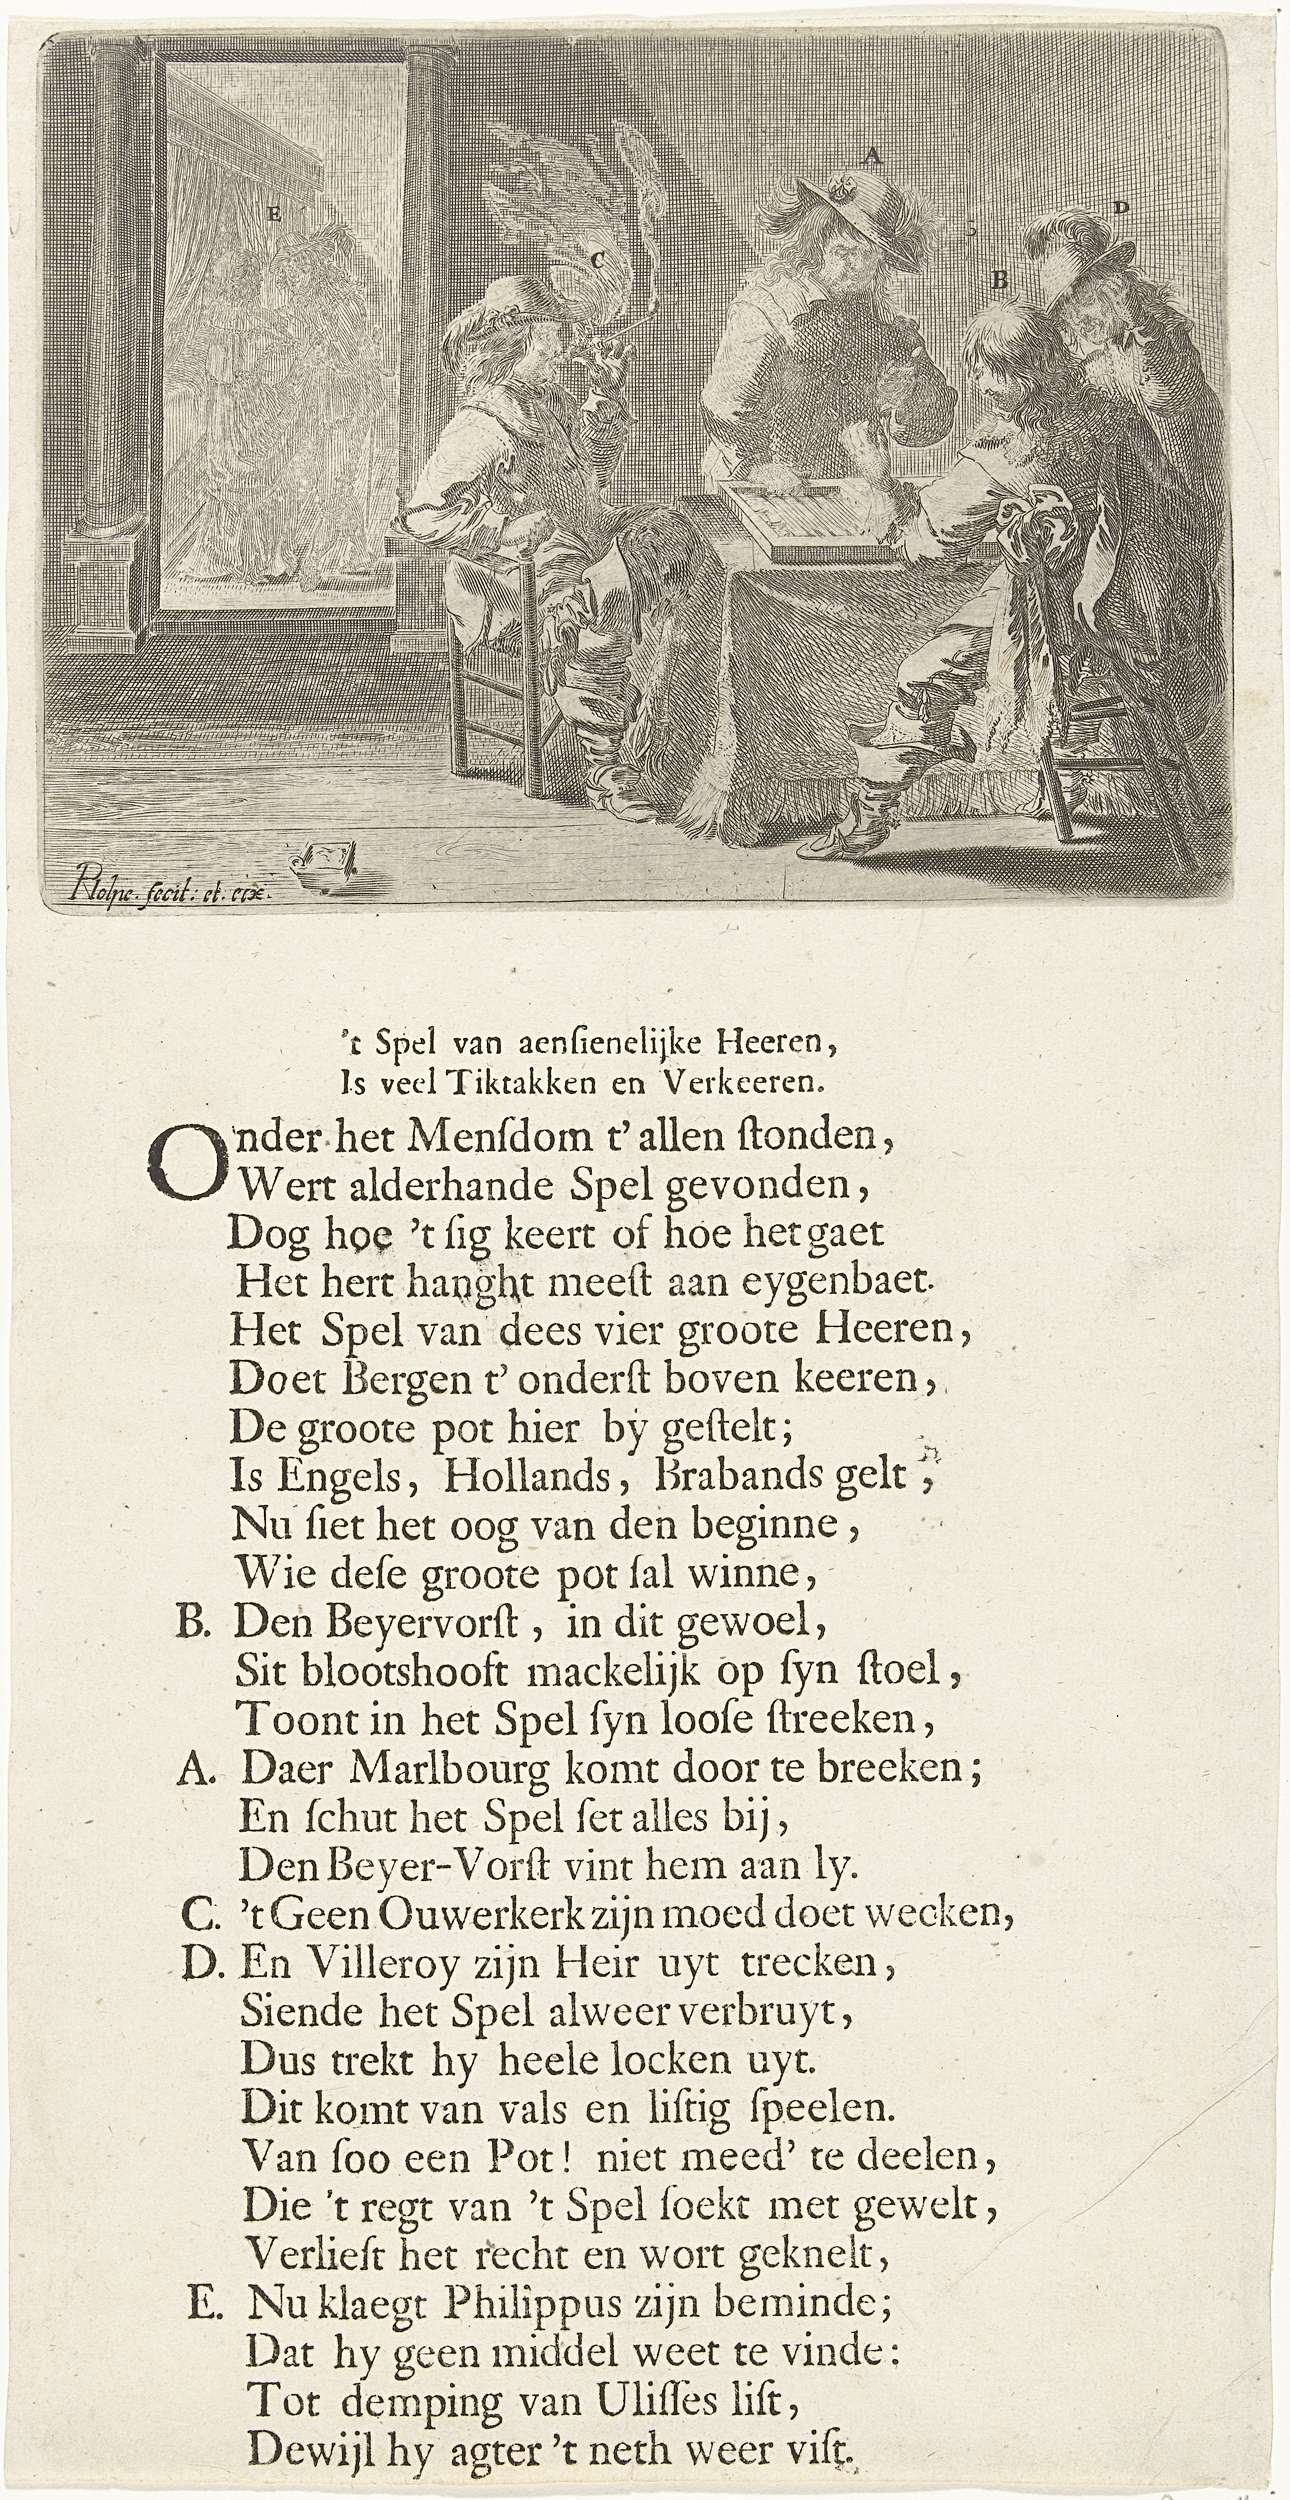 E
C
A
B
D
PNolpe. fecit: et. exc.
't Spel van aenſienelijke Heeren,
Is veel Tiktakken en Verkeeren.
Onder het Menſdom t' allen ſtonden,
Wert alderhande Spel gevonden,
Dog hoe 't ſig keert of hoe het gaet
Het hert hanght meeſt aan eygenbaet.
Het Spel van dees vier groote Heeren,
Doet Bergen t' onderſt boven keeren,
De groote pot hier by geſtelt;
Is Engels, Hollands, Brabands gelt,
Nu ſiet het oog van den beginne,
Wie deſe groote pot ſal winne,
B. Den Beyervorſt, in dit gewoel,
Sit blootshooft mackelijk op ſyn ſtoel,
Toont in het Spel ſyn looſe ſtreeken,
A. Daer Marlbourg komt door te breeken;
En ſchut het Spel ſet alles bij,
Den Beyer-Vorſt vint hem aan ly.
C. 't Geen Ouwerkerk zijn moed doet wecken,
D. En Villeroy zijn Heir uyt trecken,
Siende het Spel alweer verbruyt,
Dus trekt hy heele locken uyt.
Dit komt van vals en liſtig ſpeelen.
Van ſoo een Pot! niet meed' te deelen,
Die 't regt van 't Spel ſoekt met gewelt,
Verlieſt het recht en wort geknelt,
E. Nu klaegt Philippus zijn beminde;
Dat hy geen middel weet te vinde:
Tot demping van Uliſſes liſt,
Dewijl hy agter 't neth weer viſt.